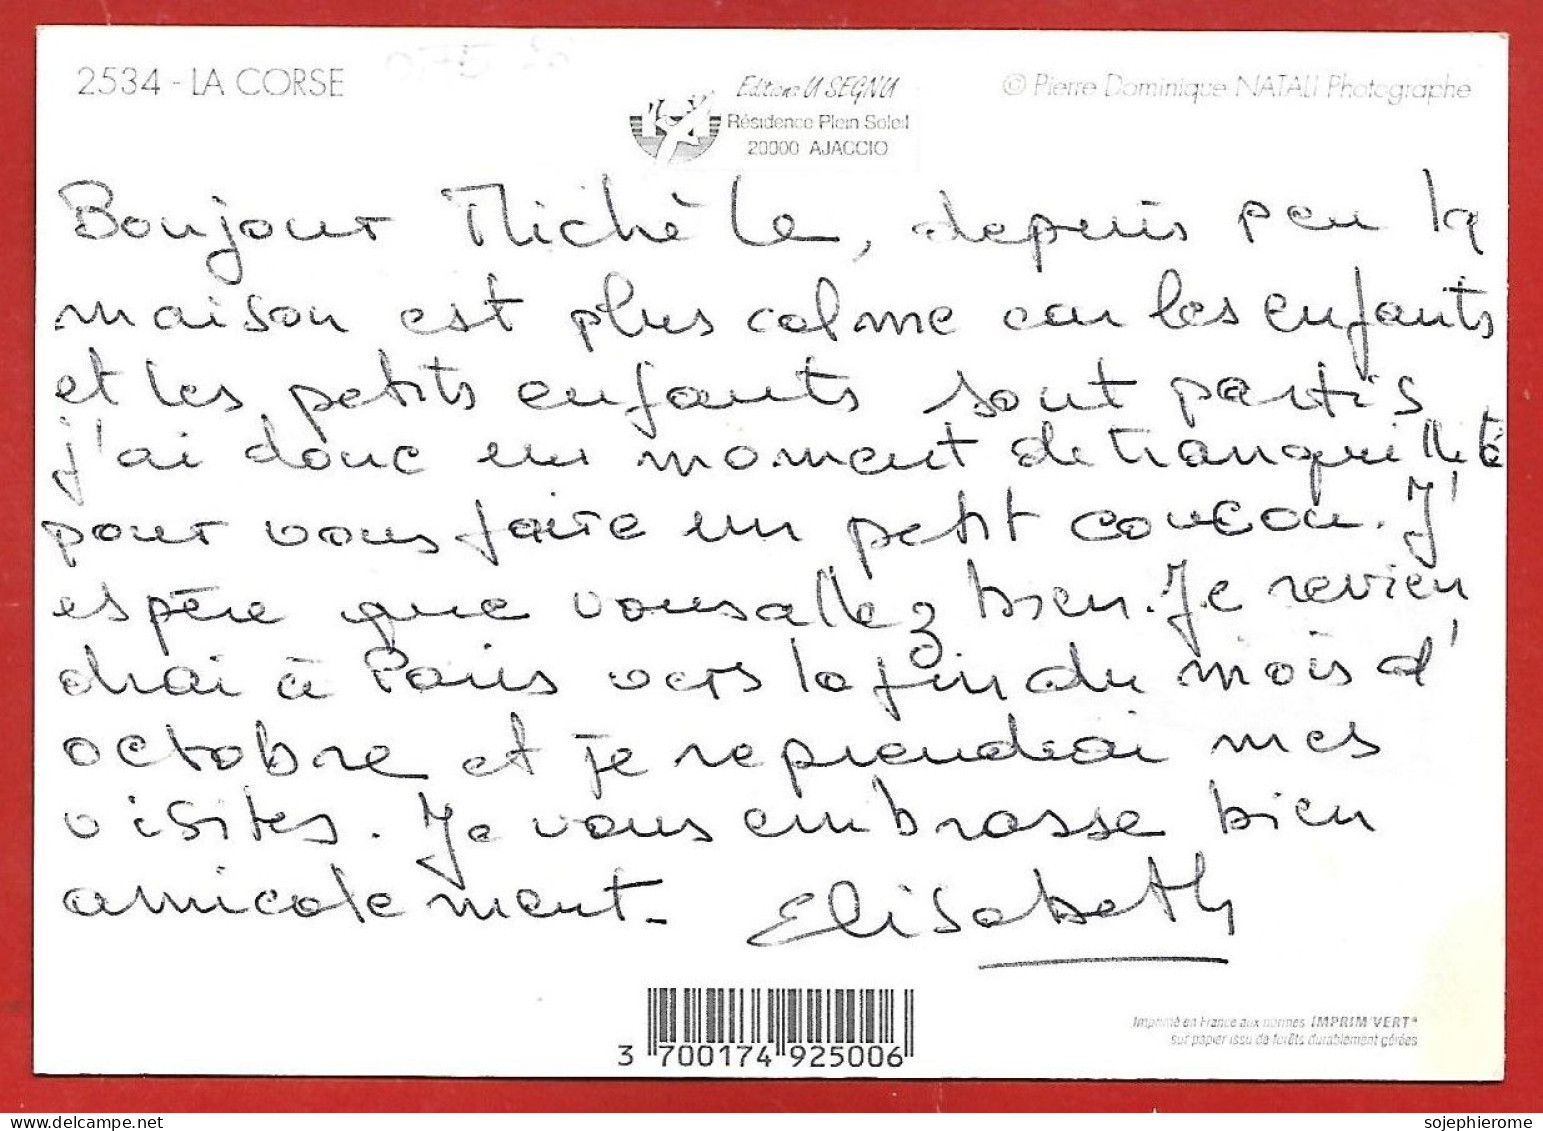 2534 - LA CORSE
Editions U SEGNU
Résidence Plein Soleil
20000 AJACCIO
© Pierre Dominique NATALI Photographe
Bonjour Michèle, depuis peu la
maison est plus calme car les enfants
et les petits enfants sont partis
j'ai donc un moment de tranquillité
pour vous faire un petit coucou. J'
espère que vous allez bien. Je revien
drai à Paris vers la fin du mois d'
octobre et je reprendrai mes
visites. Je vous embrasse bien
amicalement -
Elisabeth
3 700174 925006
Imprimé en France aux normes IMPRIM'VERT®
sur papier issu de forêts durablement gérées
sojephierome